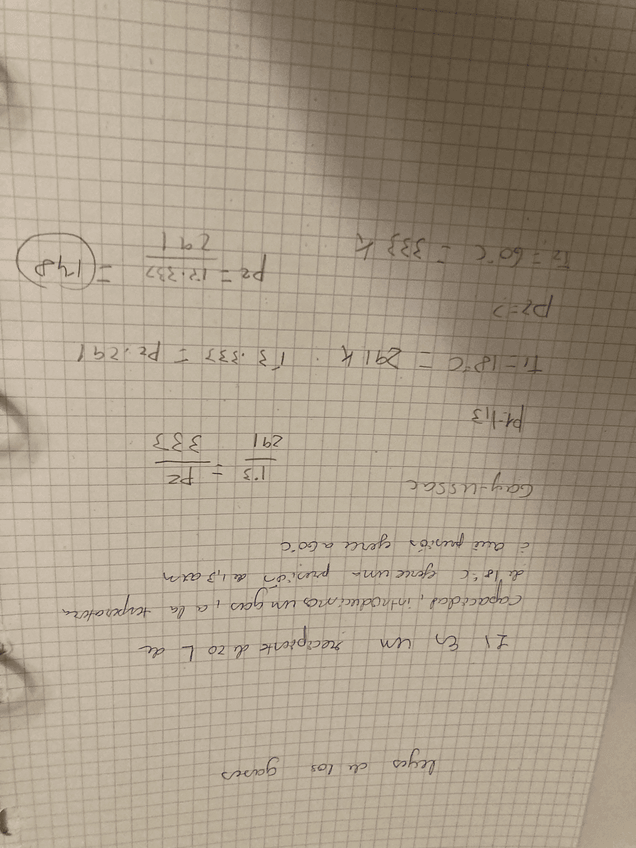 leyes de los gases
21 En un recipiente de 20 L de
capacidad, introducimos un gas, a la temperatura
de 18°C ejerce una presión de 1,3 atm
¿ qué presión ejerce a 60°C
Gay-ussac
1'3/291 = P2/333
P1=1,3
T1=18°C = 291 K . 1'3.333 = P2.291
P2=?
T2=60°C = 333 K
P2 = 13.333/291 = 1'48